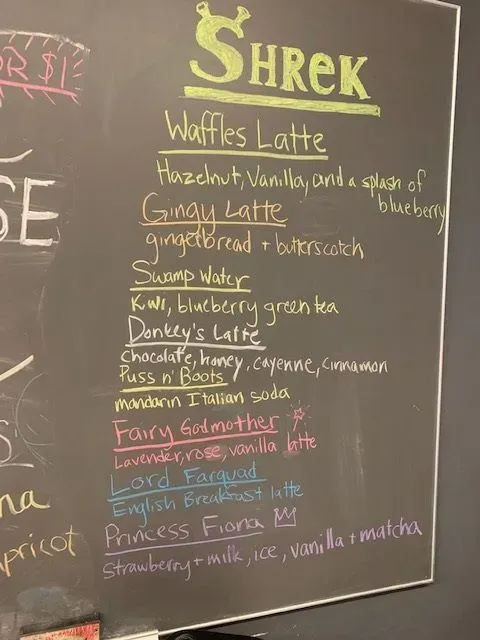 OR $1
SE
na
apricot
SHREK
Waffles Latte
Hazelnut, Vanilla, and a splash of
blueberry
Gingy Latte
gingerbread + butterscotch
Swamp Water
Kiwi, blueberry green tea
Donkey's Latte
chocolate, honey, cayenne, cinnamon
Puss n' Boots
mandarin Italian soda
Fairy Godmother
Lavender, rose, vanilla latte
Lord Farquad
English Breakfast latte
Princess Fiona
Strawberry + milk, ice, vanilla + matcha